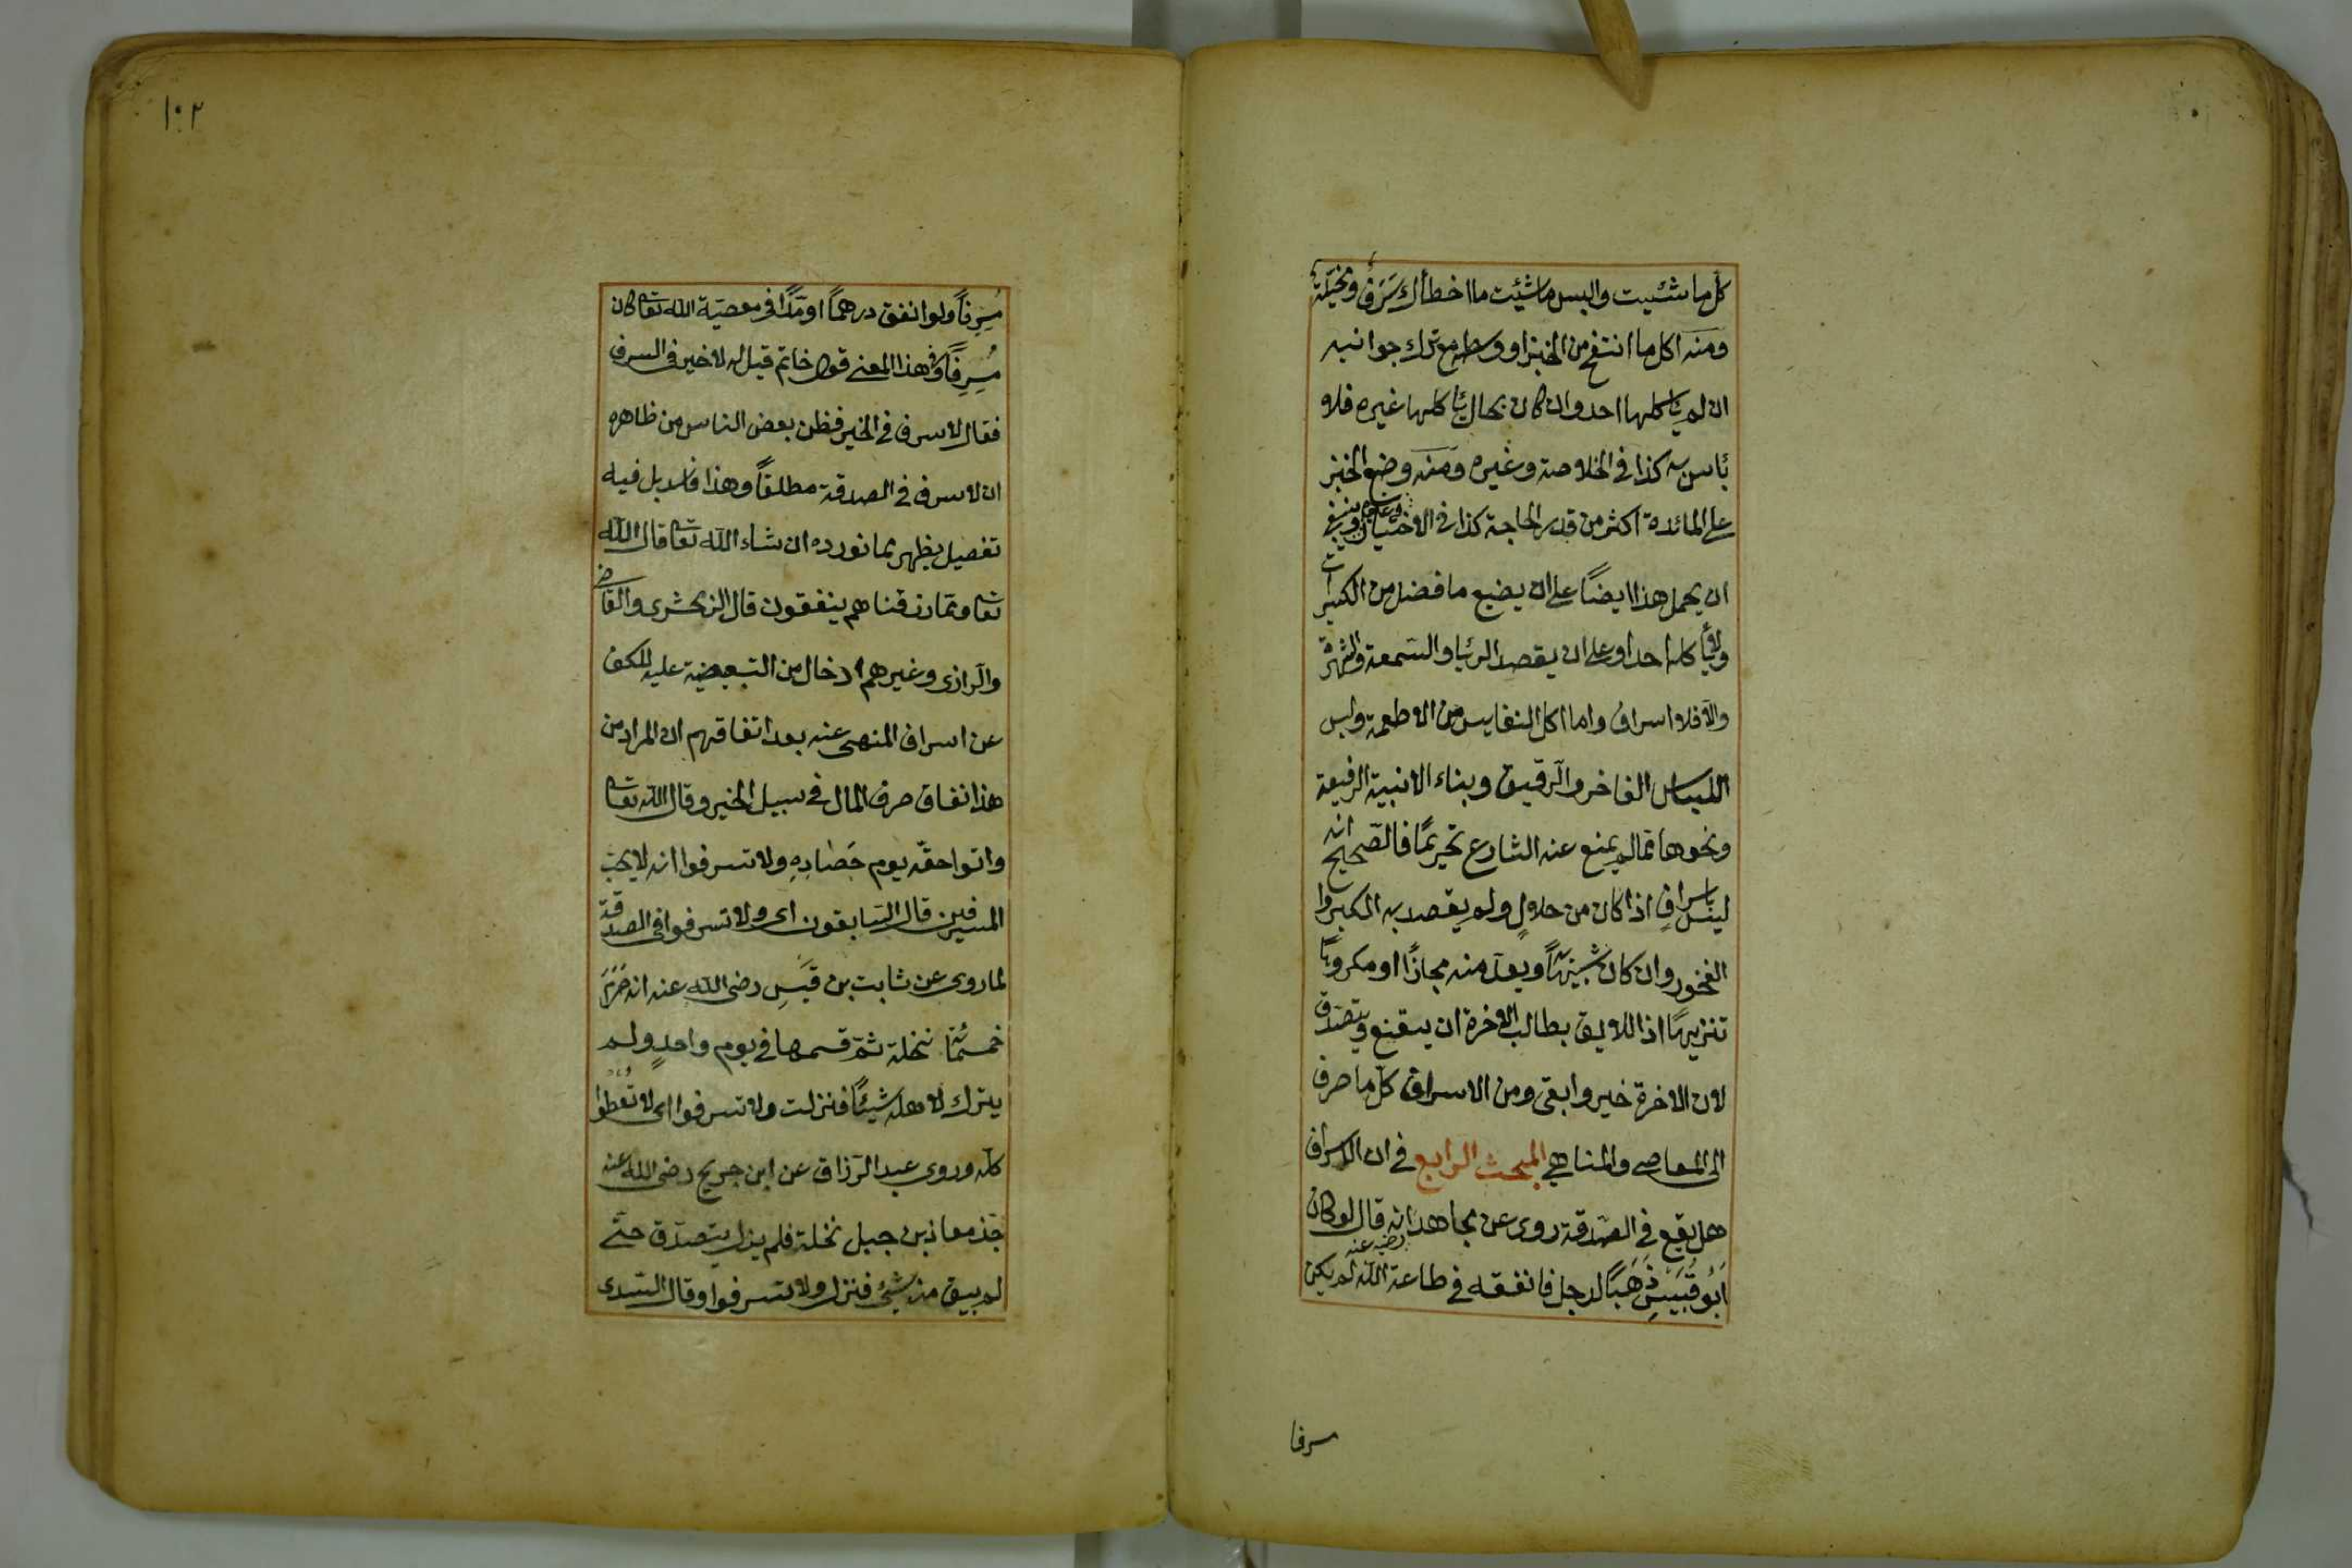 كل ما شئيت والبس ما شئيت ما اخطأك سَرَفٌ ومخيَلة
ومنه اكل ما انتفخ من الخبز او وسطه مع ترك جوانبه
ان لم ياكلها احد وان كان بحال ياكلها غيره فلا
باس به كذا في الخلاصة وغيره ومنه وضع الخبز
على المائدة اكثر من قدر الحاجة كذا في الاختيار وينبغي
ان يحمل هذا ايضًا على ان يضيع ما فضل من الكسيرات
ولا يأكله احد او على ان يقصد الرئيا والسمعة والشهرة
والّا فلا اسراف واما اكل النفايس من الاطعمة ولبس
اللباس الفاخر والرقيق وبناء الابنية الرفيعة
ونحوها مما لم يمنع عنه الشارع تحريمًا فالصّحيح انه
ليس باسرافٍ اذا كان من حلالٍ ولم يقصد به الكبر وا
الفخور وان كان شبيهًا ويعدّ منه مجازًا او مكروهًا
تنزيهًا اذ اللايق بطالب الاخرة ان يقنع ويتصدق
لان الاخرة خير وابقى ومن الاسراف كلّ ما صرف
الى المعاصى والمناهي المبحث الرابع في ان الاسراف
هل يقع في الصّدقة روى عن مجاهد رضي عنه انه قال لو كان
اَبُو قُبَيْسٍ ذَهَبًا لرجل فانفقه في طاعة الله لم يكن
سرفا
١٠٢
مُسِرِفاً ولو انفق درهمًا او مدًّا في معصية الله تعا كان
مُسِرِفًا وفي هذا المعنى قول حاتم قيل له لا خير في السرف
فقال لا سرف في الخير فظن بعض الناس من ظاهره
ان لا سرف في الصدقة مطلقاً وهذا فاسد بل فيه
تفصيل يظهر بما نورده ان شاء الله تعا قال الله
تعا ومما رزقناهم ينفقون قال الزمخشرى والقاضي
والرازى وغيرهم ادخال من التبعيضية عليه للكف
عن اسراف المنهى عنه بعد اتفاقهم ان المراد من
هذا انفاق صرف المال في سبيل الخير وقال الله تعا
واتوا حقّه يوم حَصَادِهِ ولا تسرفوا انه لا يحبّ
المسرفين قال السّابقون اى ولا تسرفوا في الصدقة
لما روى عن ثابت بن قَيسٍ رضى الله عنه انه صَرَمَ
خمسمائة نخلة ثمّ قسمها في يوم واحدٍ ولم
يترك لاهله شيئًا فنزلت ولا تسرفوا اى لا تُعطوا
كله وروى عبد الرّزاق عن ابن جريج رضى الله عنه
جذّ معاذ بن جبل نخلة فلم يزل يتصدّق حتّى
لم يبق منه شيئ فنزل ولا تسرفوا وقال السّدى